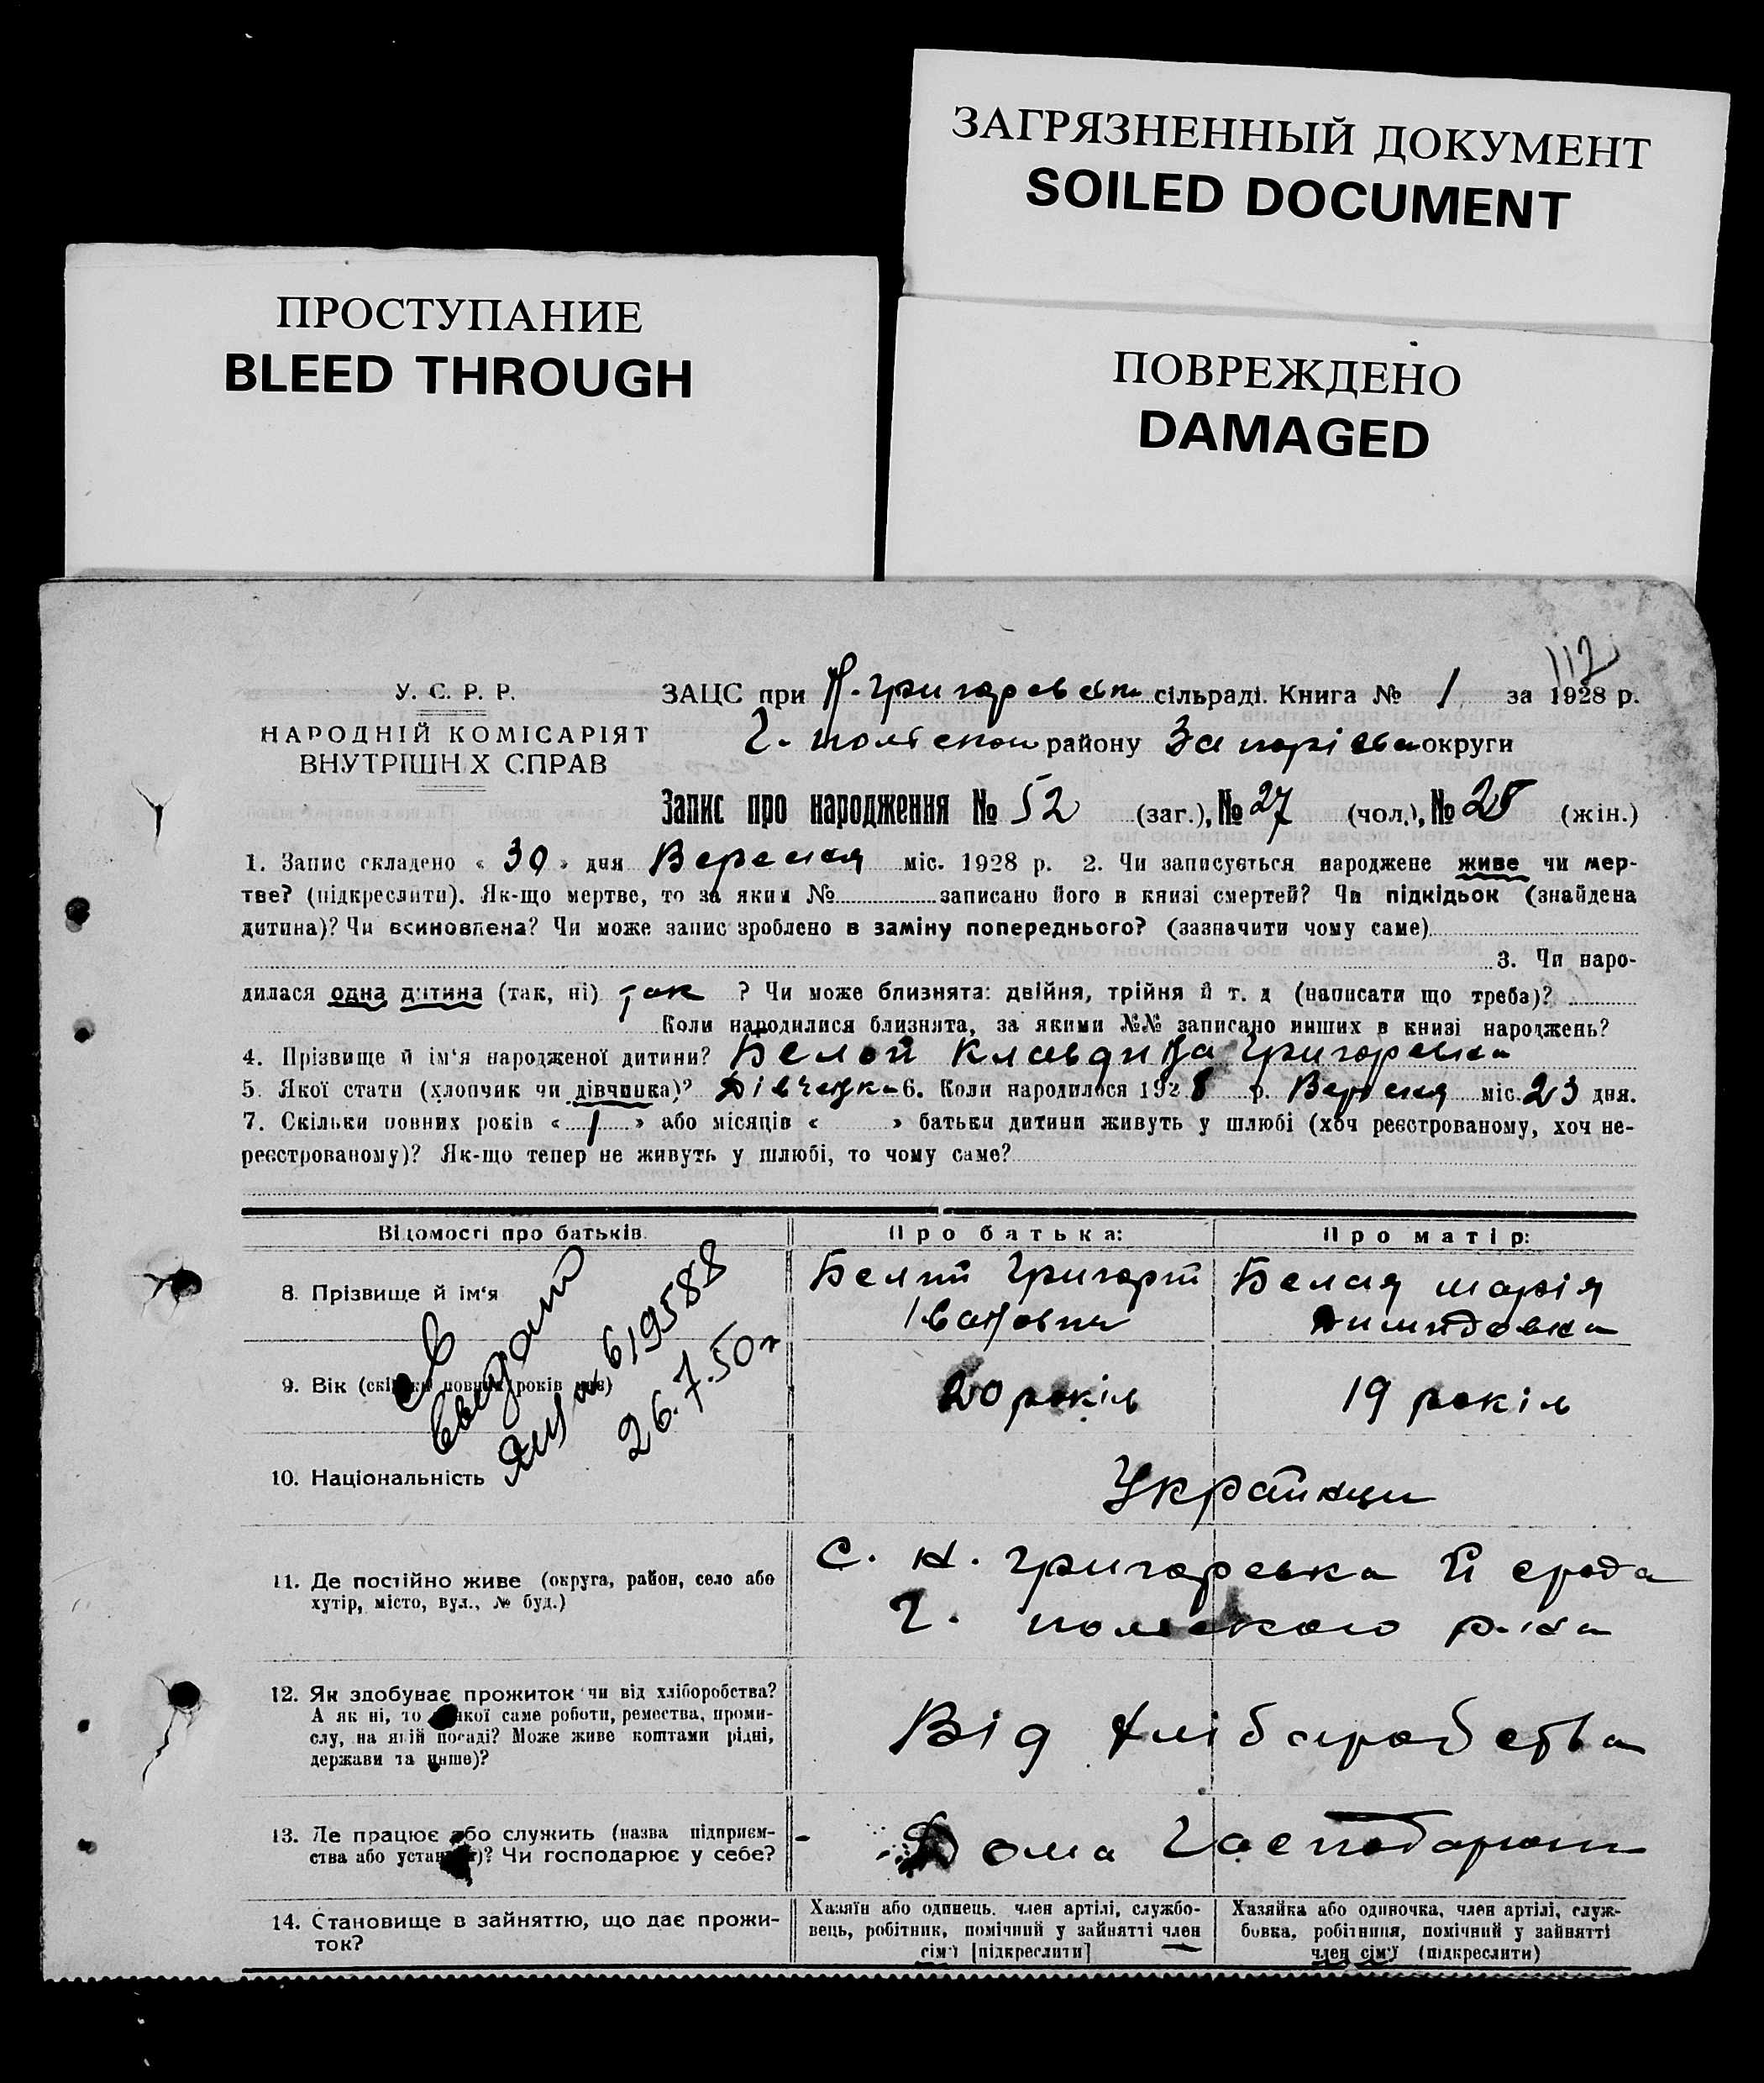 ЗАГРЯЗНЕННЫЙ ДОКУМЕНТ
SOILED DOCUMENT
ПРОСТУПАНИЕ
BLEED THROUGH
ПОВРЕЖДЕНО
DAMAGED
112
У. С. Р. Р.
НАРОДНІЙ КОМІСАРІЯТ
ВНУТРІШНІХ СПРАВ
ЗАЦС при Н. Григоревськ сільраді. Книга № 1 за 1928 р.
району округи
Запис про народження № 52 (заг.), № 27 (чол.), № 25 (жін.)
1. Запис складено « 30 » дня Вересня міс. 1928 р. 2. Чи записується народжене живе чи мер-
тве? (підкреслити). Як-що мертве, то за яким № записано його в книзі смертей? Чи підкідьок (знайдена
дитина)? Чи всиновлена? Чи може запис зроблено в заміну попереднього? (зазначити чому саме)
3. Чи наро-
дилася одна дитина (так, ні) так ? Чи може близнята: двійня, трійня й т. д (написати що треба)?
Коли народилися близнята, за якими №№ записано инших в книзі народжень?
4. Прізвище й ім'я народженої дитини? Белой Клавдия Григоревна
5. Якої стати (хлопчик чи дівчинка)? Дівчинка 6. Коли народилося 1928 р. Вересня міс. 23 дня.
7. Скільки повних років « 1 » або місяців « » батьки дитини живуть у шлюбі (хоч реєстрованому, хоч не-
реєстрованому)? Як-що тепер не живуть у шлюбі, то чому саме?
Відомості про батьків.
Про батька:
Про матір:
8. Прізвище й ім'я
Белий Григорій
Іванович
Белая Марія
619588
26.7.50г
9. Вік (скільки повних років має)
20 років
19 років
10. Національність
Українци
11. Де постійно живе (округа, район, село або
хутір, місто, вул., № буд.)
с. Н. Григорівка
12. Як здобуває прожиток чи від хліборобства?
А як ні, то з якої саме роботи, ремества, проми-
слу, на якій посаді? Може живе коштами рідні,
держави та инше)?
Від хліборобства
13. Де працює або служить (назва підприєм-
ства або установи)? Чи господарює у себе?
Дома Господарюют
14. Становище в зайняттю, що дає прожи-
ток?
Хазяїн або одинець, член артілі, службо-
вець, робітник, помічний у зайнятті член
сім'ї [підкреслити]
Хазяйка або одиночка, член артілі, служ-
бовка, робітниця, помічний у зайнятті
член сім'ї (підкреслити)